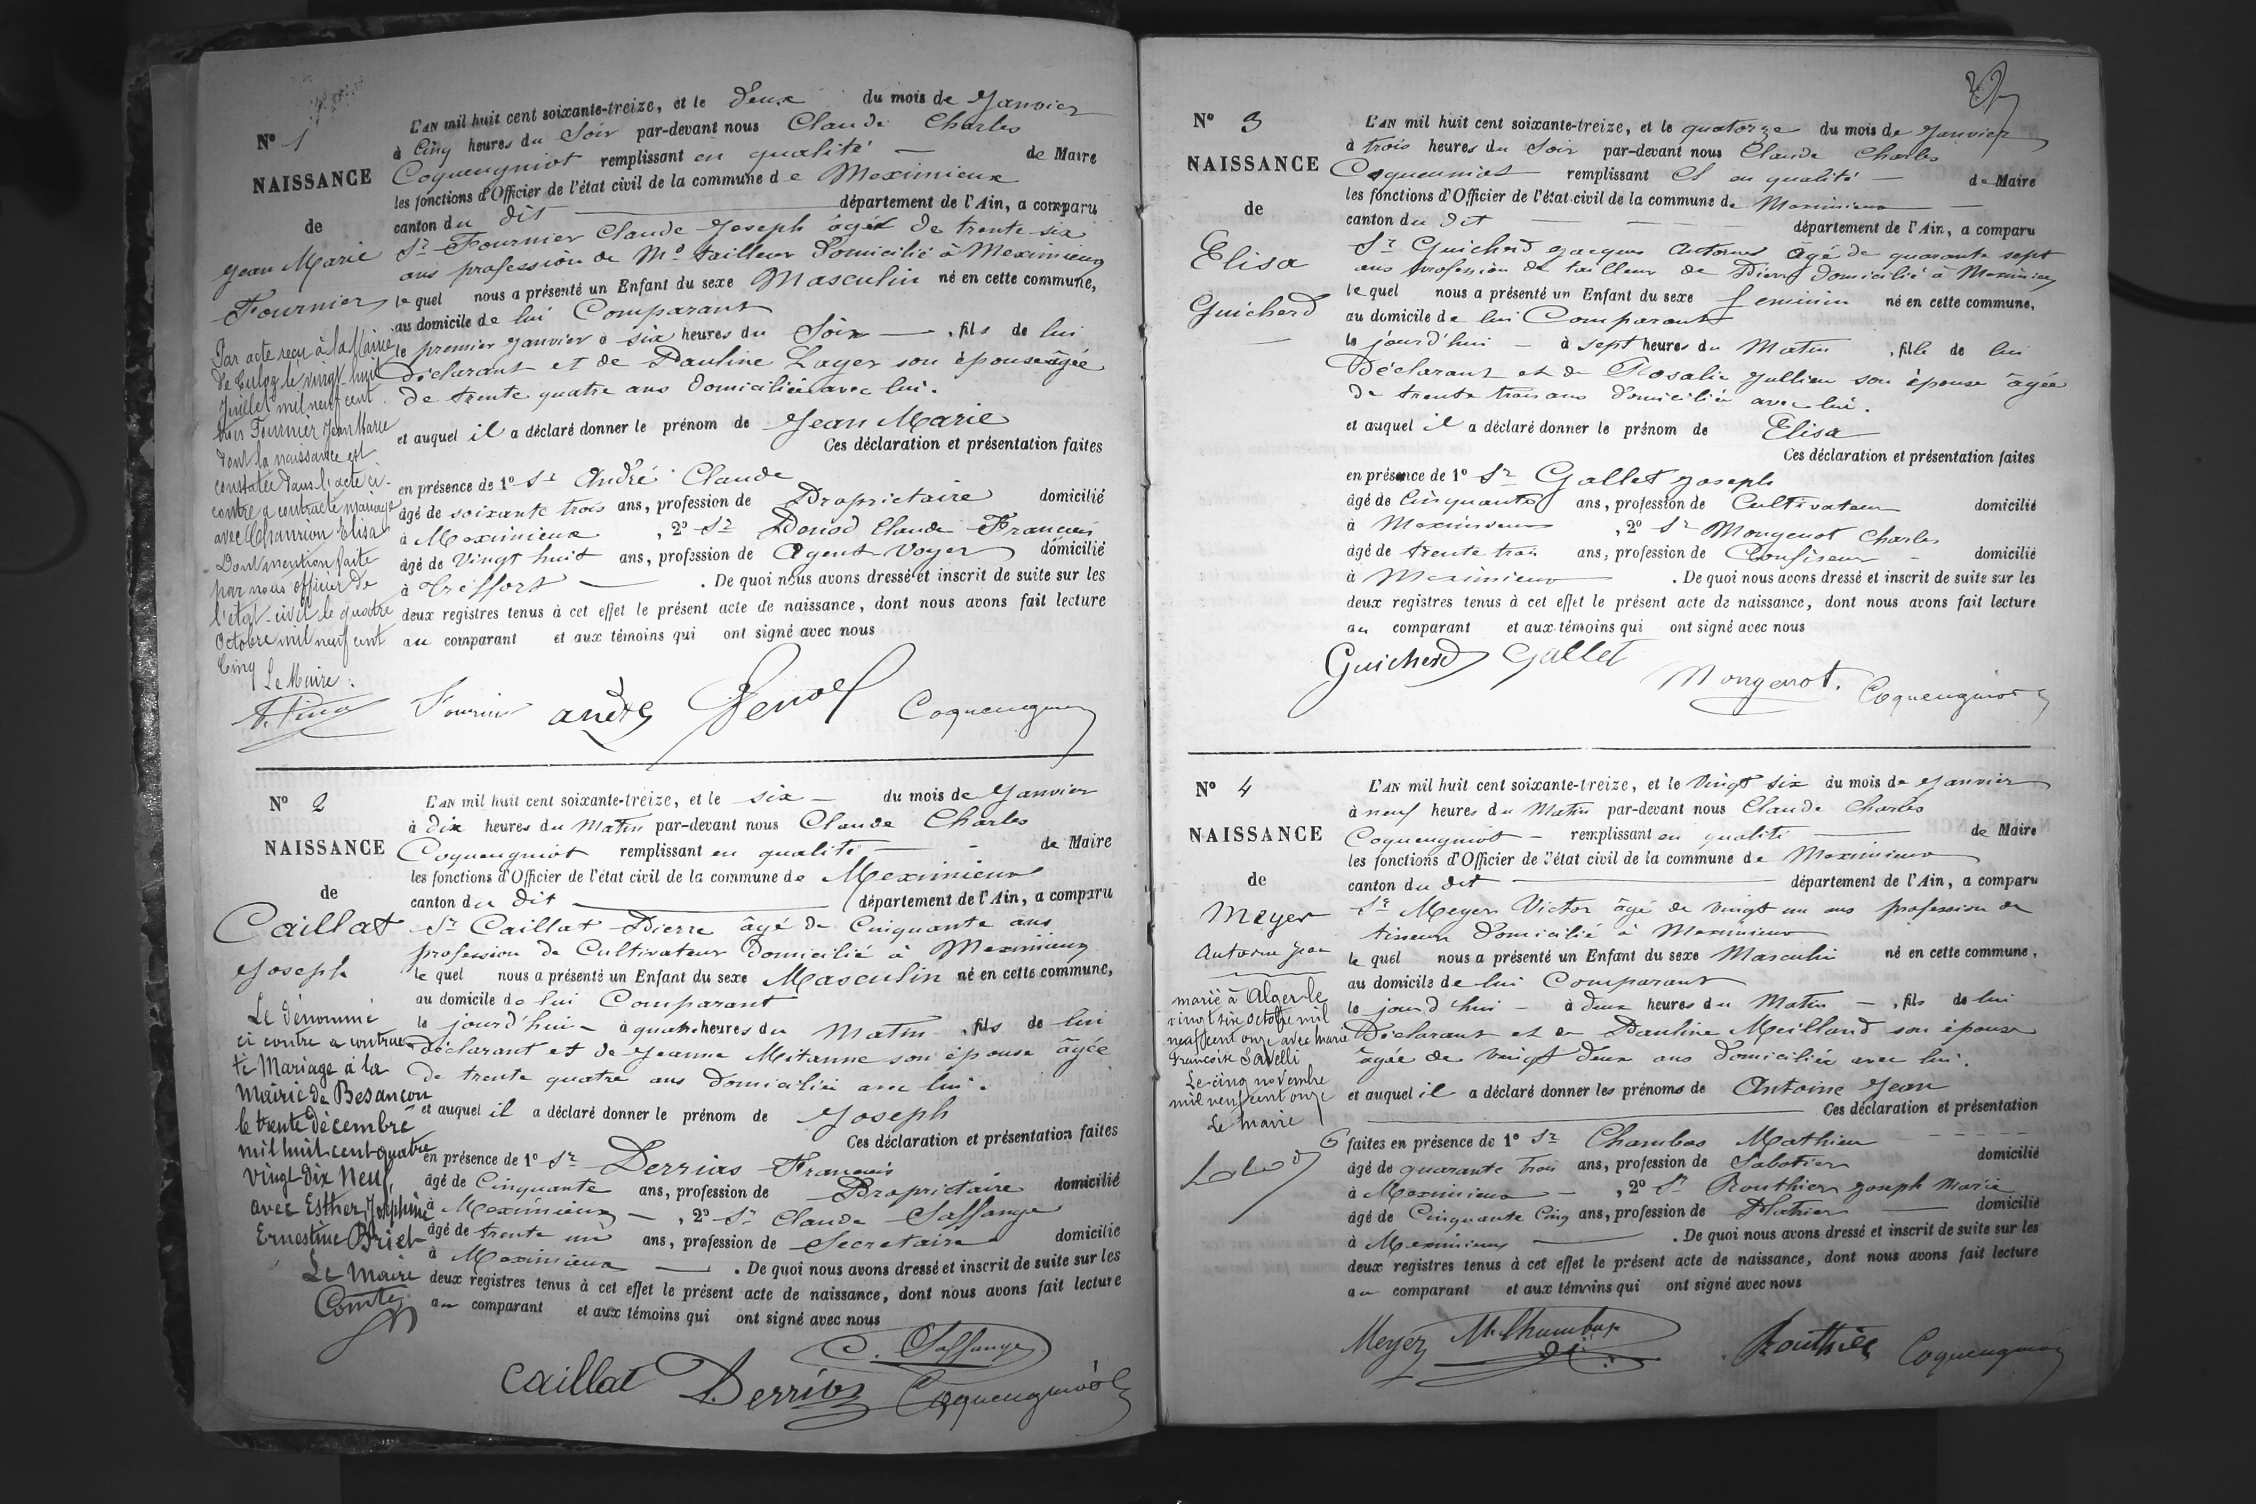 Nº 1
NAISSANCE
de
Jean Marie
Fournier
Par acte reçu à la Mairie
de Culoz le vingt-huit
Juillet mil neuf cent
trois Fournier Jean Marie
dont la naissance est
constatée dans l'acte ci-
contre a contracté mariage
avec Chanrion Elisa
Dont mention faite
par nous officier de
l'état-civil le quatre
Octobre mil neuf cent
Cinq
Le Maire :
L'AN mil huit cent soixante-treize, et le Deux du mois de Janvier
à Cinq heures du Soir par-devant nous Claude Charles
Coqueugniot remplissant en qualité — de Maire
les fonctions d'Officier de l'état civil de la commune de Meximieux
canton du dit — département de l'Ain, a comparu
Sr Fournier Claude Joseph âgé de trente six
ans profession de Md tailleur domicilié à Meximieux
lequel nous a présenté un Enfant du sexe Masculin né en cette commune,
au domicile de lui Comparant
le premier Janvier à six heures du Soir — , fils de lui
Déclarant et de Pauline Layer son épouse âgée
de trente quatre ans domiciliée avec lui.
et auquel il a déclaré donner le prénom de Jean Marie
Ces déclaration et présentation faites
en présence de 1º Sr André Claude
âgé de soixante trois ans, profession de Propriétaire domicilié
à Meximieux , 2º Sr Claude François
âgé de Vingt huit ans, profession de Agent Voyer domicilié
à Treffort — . De quoi nous avons dressé et inscrit de suite sur les
deux registres tenus à cet effet le présent acte de naissance, dont nous avons fait lecture
au comparant et aux témoins qui ont signé avec nous
Fournier André Coqueugniot
Nº 2
NAISSANCE
de
Caillat
Joseph
Le dénommé
ci contre a contrac
té Mariage à la
Mairie de Besançon
le trente décembre
mil huit cent quatre
vingt dix neuf,
avec Esther Joséphine
Ernestine Briet
Le Maire
Comte
L'AN mil huit cent soixante-treize, et le six — du mois de Janvier
à dix heures du Matin par-devant nous Claude Charles
Coqueugniot remplissant en qualité — de Maire
les fonctions d'Officier de l'état civil de la commune de Meximieux
canton du dit — département de l'Ain, a comparu
Sr Caillat Pierre âgé de Cinquante ans
profession de Cultivateur domicilié à Meximieux
lequel nous a présenté un Enfant du sexe Masculin né en cette commune,
au domicile de lui Comparant
le jourd'hui - à quatre heures du Matin , fils de lui
déclarant et de Jeanne Mitanne son épouse âgée
de trente quatre ans domiciliée avec lui.
et auquel il a déclaré donner le prénom de Joseph
Ces déclaration et présentation faites
en présence de 1º Sr Derrias François
âgé de Cinquante ans, profession de Propriétaire domicilié
à Meximieux — , 2º Sr Claude Saffange
âgé de trente un ans, profession de Secrétaire domicilié
à Meximieux — . De quoi nous avons dressé et inscrit de suite sur les
deux registres tenus à cet effet le présent acte de naissance, dont nous avons fait lecture
au comparant et aux témoins qui ont signé avec nous
C. Saffange
Caillat Derrias Coqueugniot
Nº 3
NAISSANCE
de
Elisa
Guicherd
L'AN mil huit cent soixante-treize, et le quatorze du mois de Janvier
à trois heures du Soir par-devant nous Claude Charles
Coqueugniot remplissant en qualité — de Maire
les fonctions d'Officier de l'état civil de la commune de Meximieux —
canton du dit — département de l'Ain, a comparu
Sr Guicherd Jacques Antoine âgé de quarante sept
ans profession de tailleur de Pierre domicilié à Meximieux
lequel nous a présenté un Enfant du sexe feminin né en cette commune,
au domicile de lui Comparant
le jourd'hui — à sept heures du Matin , fille de lui
Déclarant et de Rosalie Jullien son épouse âgée
de trente trois ans domiciliée avec lui.
et auquel il a déclaré donner le prénom de Elisa
Ces déclaration et présentation faites
en présence de 1º Sr Gallet Joseph
âgé de Cinquante ans, profession de Cultivateur domicilié
à Meximieux , 2º Sr Mongenot Charles
âgé de trente trois ans, profession de Confiseur - domicilié
à Meximieux — . De quoi nous avons dressé et inscrit de suite sur les
deux registres tenus à cet effet le présent acte de naissance, dont nous avons fait lecture
au comparant et aux témoins qui ont signé avec nous
Guicherd Gallet Mongenot. Coqueugniot
Nº 4
NAISSANCE
de
Meyer
Antoine Jean
marié à Alger le
vingt six octobre mil
neuf cent onze avec Marie
Françoise Savelli
Le cinq novembre
mil neuf cent onze
Le Maire
L'AN mil huit cent soixante-treize, et le Vingt six du mois de Janvier
à neuf heures du Matin par-devant nous Claude Charles
Coqueugniot — remplissant en qualité — de Maire
les fonctions d'Officier de l'état civil de la commune de Meximieux
canton du dit — département de l'Ain, a comparu
Sr Meyer Victor âgé de vingt un ans profession de
tisseur domicilié à Meximieux
lequel nous a présenté un Enfant du sexe Masculin né en cette commune,
au domicile de lui Comparant
le jourd'hui — à deux heures du Matin — , fils de lui
Déclarant et de Pauline Meilland son épouse
âgée de vingt deux ans domiciliée avec lui.
et auquel il a déclaré donner les prénoms de Antoine Jean
Ces déclaration et présentation
faites en présence de 1º Sr Chambas Mathieu
âgé de quarante trois ans, profession de Sabotier domicilié
à Meximieux — , 2º Sr Routhier Joseph Marie
âgé de Cinquante Cinq ans, profession de Plâtrier — domicilié
à Meximieux — . De quoi nous avons dressé et inscrit de suite sur les
deux registres tenus à cet effet le présent acte de naissance, dont nous avons fait lecture
au comparant et aux témoins qui ont signé avec nous
Meyer M. Chambas Routhier Coqueugniot